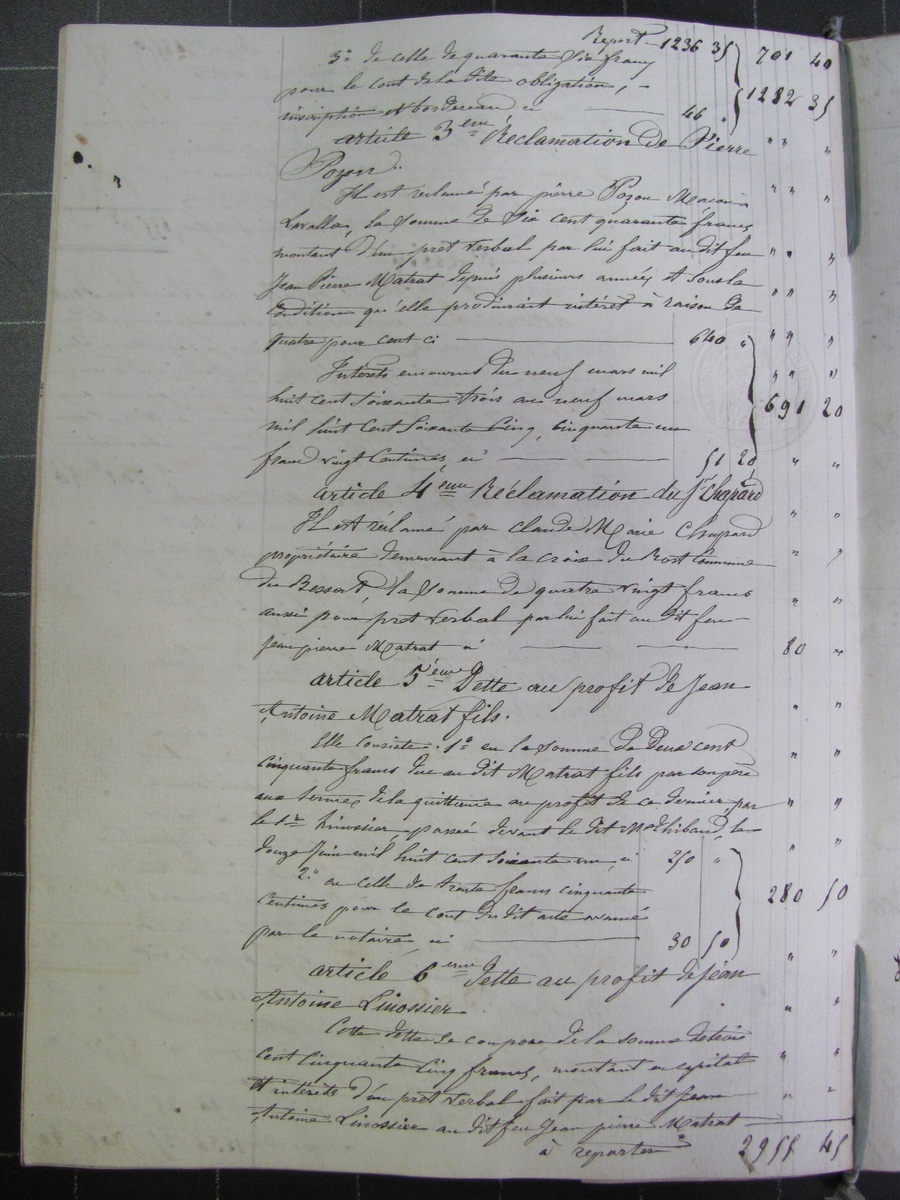 Report — 1236 35 701 40
3° de celle de quarante six francs
pour le cout de la dite obligation, —
inscription et bordereau ci — 46 " 1282 35
article 3eme Réclamation de Pierre " " "
Pozon.
Il est réclamé par pierre Pozon " " "
Lavalla, la somme de six cent quarante francs
montant d'un prêt verbal par lui fait au dit feu " " "
Jean Pierre Matrat depuis plusieurs années et sous la
condition qu'elle produirait intérêt à raison de " " "
quatre pour cent ci — 640 " " " "
Intérêts encourus du neuf mars mil " " "
huit cent soixante trois au neuf mars 691 20
mil huit cent soixante cinq, cinquante un
franc vingt centimes ci — 51 20 " "
article 4eme Réclamation du Sr Chapard
Il est réclamé par Claude Marie Chapard " "
propriétaire demeurant à la croix du Bost Commune " "
du Bessat, la somme de quatre vingt francs " "
aussi pour prêt verbal par lui fait au dit feu —
Jean pierre Matrat ci — 80 "
article 5eme Dette au profit de Jean
Antoine Matrat fils. " "
Elle consiste: 1° en la somme de deux cent " "
cinquante francs due au dit Matrat fils par son père
aux termes de la quittance au profit de ce dernier, par " "
le Sr Linossier, passée devant le dit Me Thibaud, le
douze Juin mil huit cent soixante un, ci 250 " " "
2° en celle de trente francs cinquante 280 50
centimes pour le cout du dit acte
par le notaire, ci — 30 50
article 6eme Dette au profit de Jean " "
Antoine Linossier. " "
Cette dette se compose de la somme de trois
cent cinquante cinq francs, montant en capital " "
et intérêts d'un prêt verbal fait par le dit Jean " "
Antoine Linossier au dit feu Jean pierre Matrat —
à reporter 2955 45